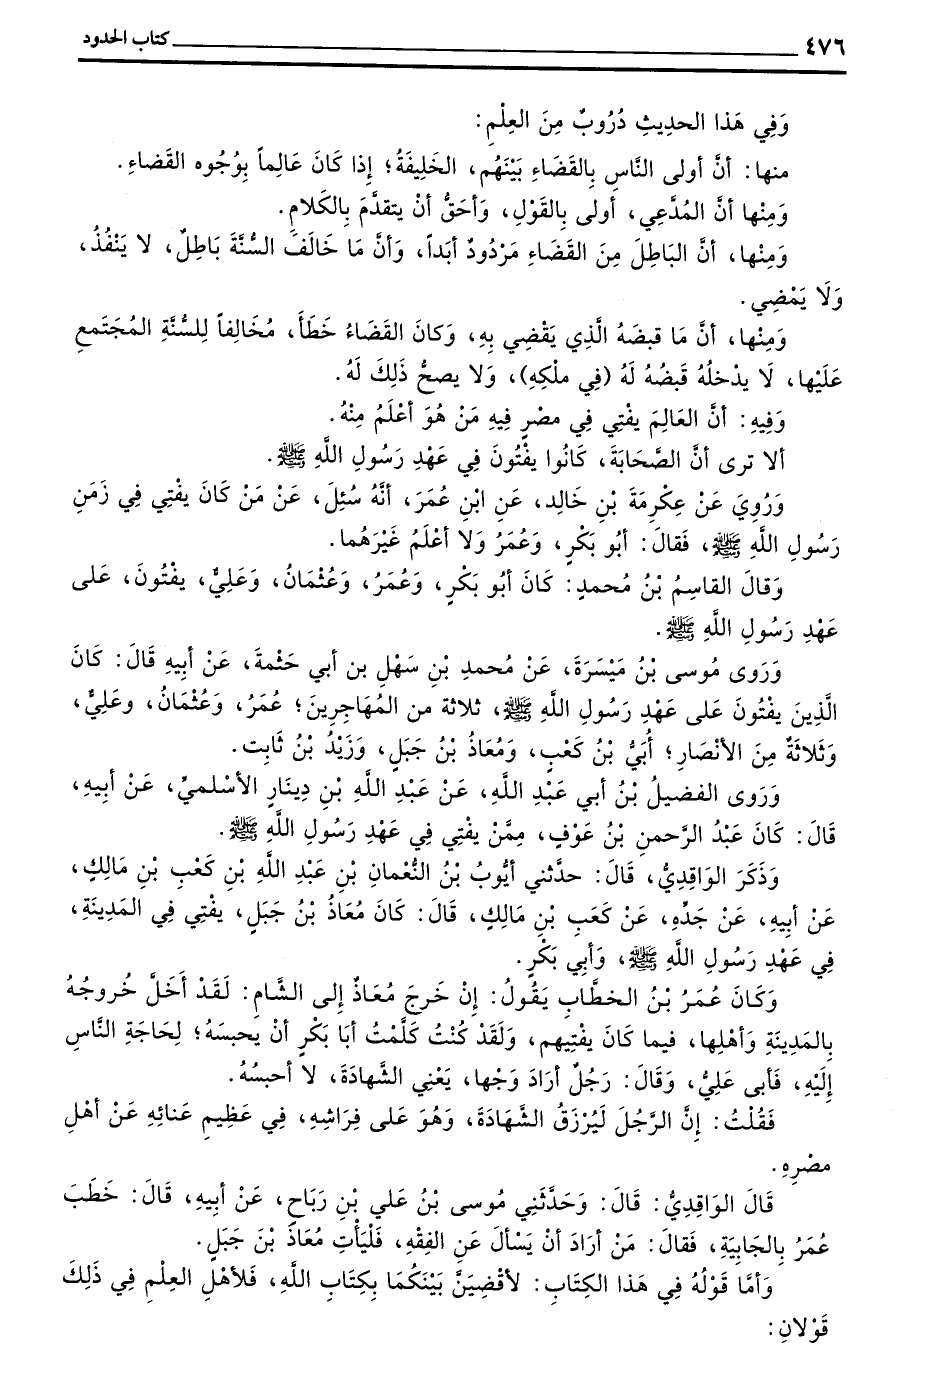 ٤٧٦ كتاب الحدود
وَفِي هَذا الحدِيثِ دُرُوبٌ مِنَ العِلْمِ:
منها: أنَّ أولى النَّاسِ بِالقَضَاءِ بَيْنَهُم، الخَلِيفَةُ؛ إِذا كَانَ عَالِماً بِوُجُوه القَضاءِ.
وَمِنْها أنَّ المُدَّعِي، أولى بِالقَوْلِ، وَأحَقُّ أنْ يتقدَّمَ بِالكَلامِ.
وَمِنْها، أنَّ البَاطِلَ مِنَ القَضَاءِ مَرْدُودٌ أبَداً، وَأنَّ مَا خَالَفَ السُّنَّةَ بَاطِلٌ، لا يَنْفُذُ،
وَلَا يَمْضِي.
وَمِنْها، أنَّ مَا قبضَهُ الَّذِي يَقْضِي بِهِ، وَكانَ القَضَاءُ خَطَأَ، مُخَالِفاً لِلسُّنَّةِ المُجَتَمعِ
عَلَيْها، لَا يدْخلُهُ قَبضُهُ لَهُ (فِي ملْكِهِ)، وَلا يصحُّ ذَلِكَ لَهُ.
وَفِيهِ: أنَّ العَالِمَ يفْتِي فِي مصْرٍ فِيهِ مَنْ هُوَ أعْلَمُ مِنْهُ.
ألا ترى أنَّ الصَّحَابَةَ، كَانُوا يفْتُونَ فِي عَهْدِ رَسُولِ اللَّهِ ﷺ.
وَرُوِيَ عَنْ عِكْرِمَةَ بْنِ خالِد، عَنِ ابْنِ عُمَرَ، أنَّهُ سُئِلَ، عَنْ مَنْ كَانَ يفْتِي فِي زَمَنِ
رَسُولِ اللَّهِ ﷺ، فَقالَ: أبُو بَكْرٍ، وَعُمَرُ وَلا أعْلَمُ غَيْرَهُما.
وَقالَ القاسِمُ بْنُ مُحمدٍ: كَانَ أبُو بَكْرٍ، وَعُمَرُ، وَعُثْمَانُ، وَعَلِيٌّ، يفْتُونَ، عَلى
عَهْدِ رَسُولِ اللَّهِ ﷺ.
وَرَوى مُوسى بْنُ مَيْسَرَةَ، عَنْ مُحمدِ بْنِ سَهْلِ بن أبي حَثْمةَ، عَنْ أبِيهِ قَالَ: كَانَ
الَّذِينَ يفْتُونَ عَلى عَهْدِ رَسُولِ اللَّهِ ﷺ، ثلاثة من المُهَاجِرِينَ؛ عُمَرُ، وَعُثْمَانُ، وعَلِيٌّ،
وَثَلاثَةٌ مِنَ الأنْصَارِ؛ أُبَيُّ بْنُ كَعْبٍ، وَمُعَاذُ بْنُ جَبَلٍ، وَزَيْدُ بْنُ ثَابِت.
وَرَوى الفضيلُ بْنُ أبي عَبْدِ اللَّهِ، عَنْ عَبْدِ اللَّهِ بْنِ دِينَارٍ الأسْلميِّ، عَنْ أبِيهِ،
قَالَ: كَانَ عَبْدُ الرَّحمنِ بْنُ عَوْفٍ، مِمَّنْ يفْتِي فِي عَهْدِ رَسُولِ اللَّهِ ﷺ.
وَذَكَرَ الوَاقِدِيُّ، قَالَ: حدَّثني أيُّوبُ بْنُ النُّعْمانِ بْنِ عَبْدِ اللَّهِ بْنِ كَعْبِ بْنِ مَالِكٍ،
عَنْ أبِيهِ، عَنْ جَدِّهِ، عَنْ كَعَبِ بْنِ مَالِكٍ، قَالَ: كَانَ مُعَاذُ بْنُ جَبَلٍ، يفْتِي فِي المَدِينَةِ،
فِي عَهْدِ رَسُولِ اللَّهِ ﷺ، وَأبي بَكْرٍ.
وَكَانَ عُمَرُ بْنُ الخطَّابِ يَقُولُ: إِنْ خَرجَ مُعَاذٌ إِلى الشَّامِ: لَقَدْ أَخَلَّ خُروجُهُ
بِالمَدِينَةِ وَأهْلِها، فيما كَانَ يفْتِيهم، وَلَقَدْ كُنْتُ كَلَّمْتُ أبَا بَكْرٍ أنْ يحبسَهُ؛ لِحَاجَةِ النَّاسِ
إِلَيْهِ، فَأبى عَلِيُّ، وَقَالَ: رَجُلٌ أرَادَ وَجْها، يَعْنِي الشَّهادَةَ، لا أحبسُهُ.
فَقُلْتُ: إِنَّ الرَّجُلَ لَيُرْزَقُ الشَّهَادَةَ، وَهُوَ عَلى فِرَاشِهِ، فِي عَظِيمِ عَنائِهِ عَنْ أهْلِ
مصْرِهِ.
قَالَ الوَاقِدِيُّ: قَالَ: وَحَدَّثَنِي مُوسى بْنُ عَلي بْنِ رَبَاحٍ، عَنْ أبِيهِ، قَالَ: خَطَبَ
عُمَرُ بِالجَابِيَةِ، فَقالَ: مَنْ أرَادَ أنْ يَسْألَ عَنِ الفِقْهِ، فَلْيَأْتِ مُعَاذَ بْنَ جَبَلٍ.
وَأمَّا قَوْلُهُ فِي هَذا الكِتَابِ: لأقْضِيَنَّ بَيْنَكُمَا بِكِتَابِ اللَّهِ، فَلأهْلِ العِلْمِ فِي ذَلِكَ
قَوْلانِ: